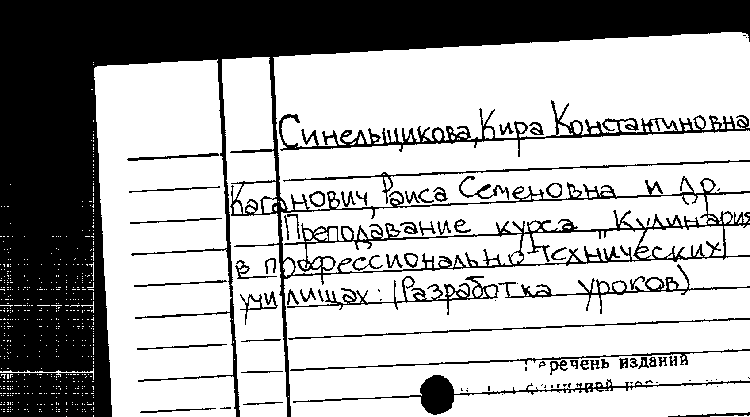 Синельщикова, Кира Константиновна
Каганович, Раиса Семеновна и др.
Преподавание курса „Кулинария
в профессионально-технических
училищах: (Разработка уроков)
Перечень изданий
фамилией